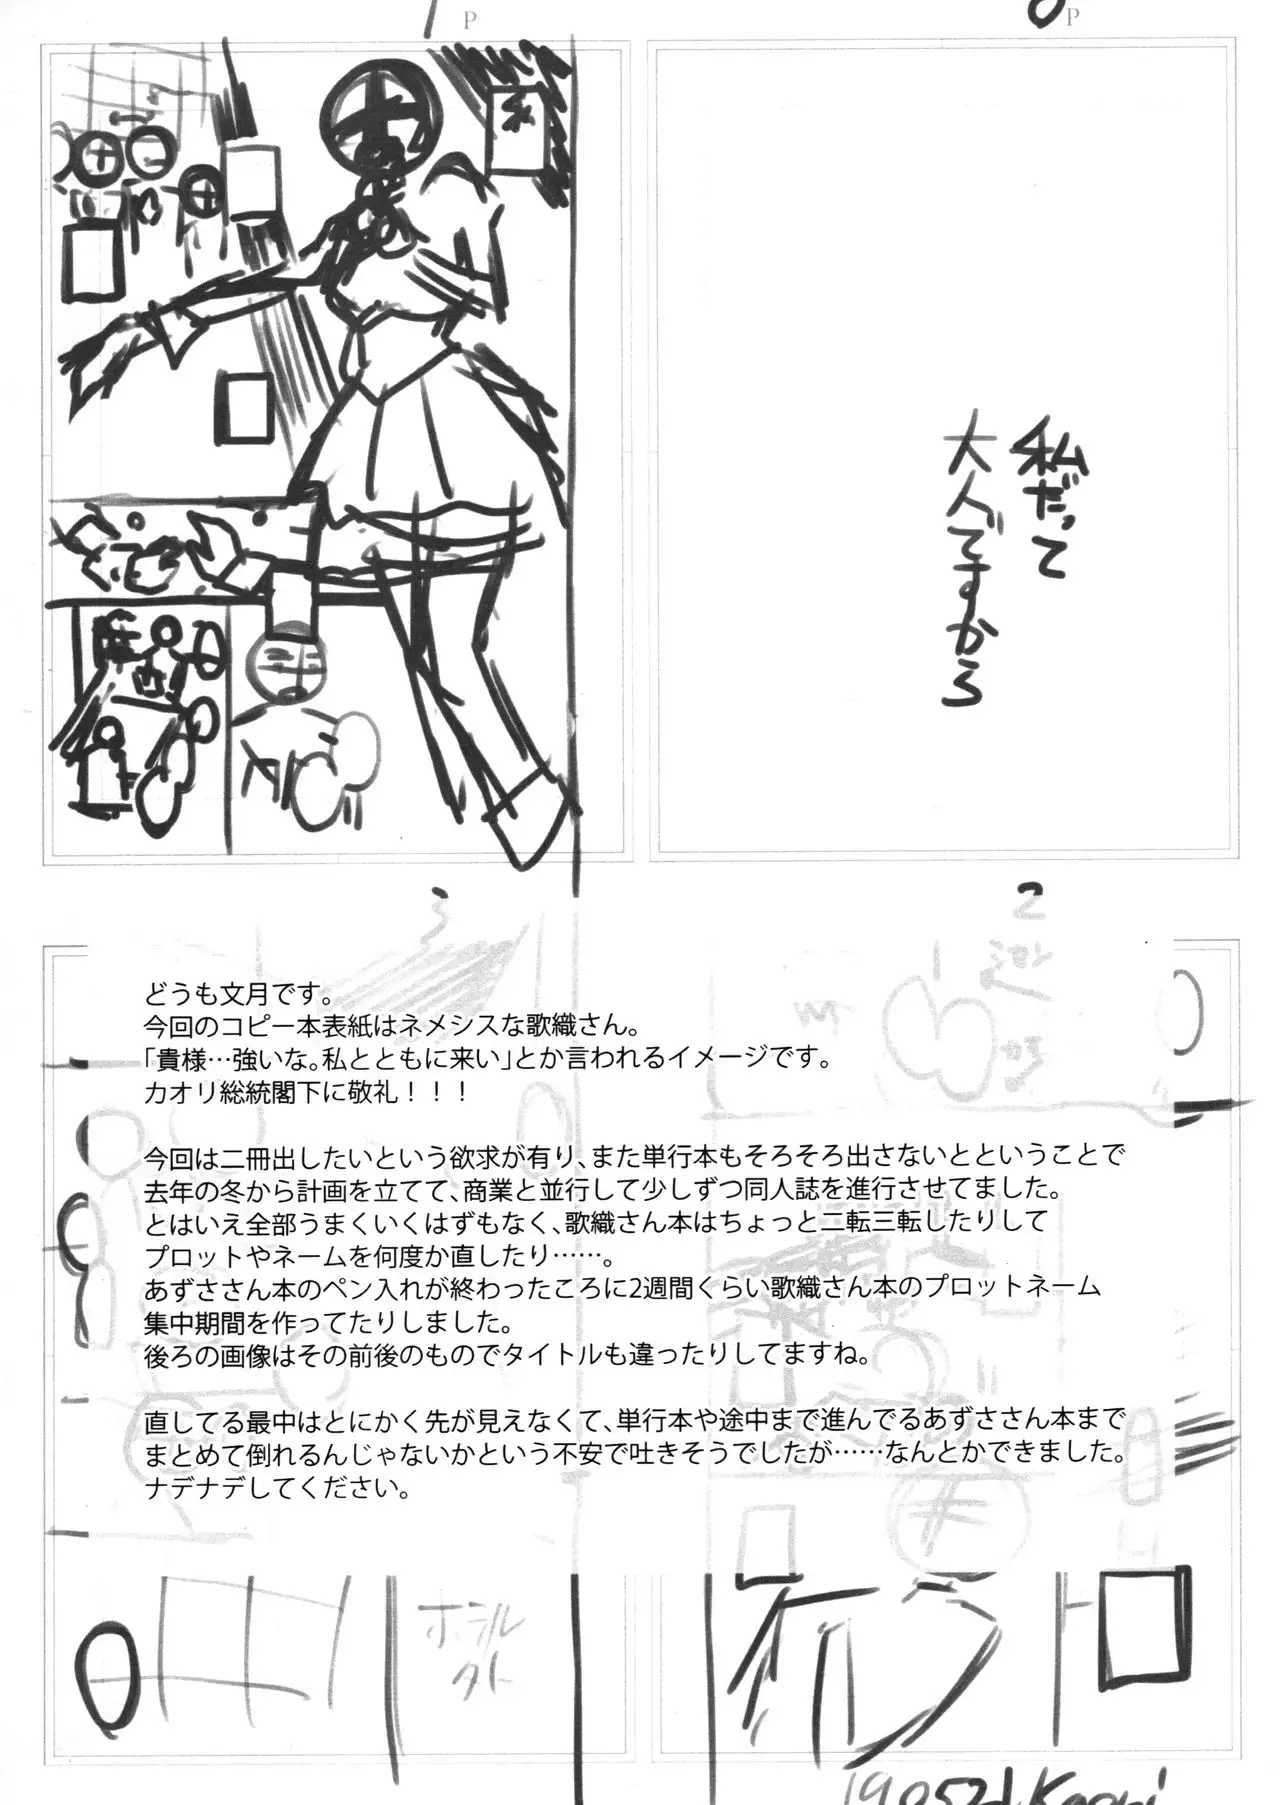 1 P
P
私だって
大人ですから
3
2
どうも文月です。
今回のコピー本表紙はネメシスな歌織さん。
「貴様…強いな。私とともに来い」とか言われるイメージです。
カオリ総統閣下に敬礼！！！
今回は二冊出したいという欲求が有り、また単行本もそろそろ出さないとということで
去年の冬から計画を立てて、商業と並行して少しずつ同人誌を進行させてました。
とはいえ全部うまくいくはずもなく、歌織さん本はちょっと二転三転したりして
プロットやネームを何度か直したり……。
あずささん本のペン入れが終わったころに2週間くらい歌織さん本のプロットネーム
集中期間を作ってたりしました。
後ろの画像はその前後のものでタイトルも違ったりしてますね。
直してる最中はとにかく先が見えなくて、単行本や途中まで進んでるあずささん本まで
まとめて倒れるんじゃないかという不安で吐きそうでしたが……なんとかできました。
ナデナデしてください。